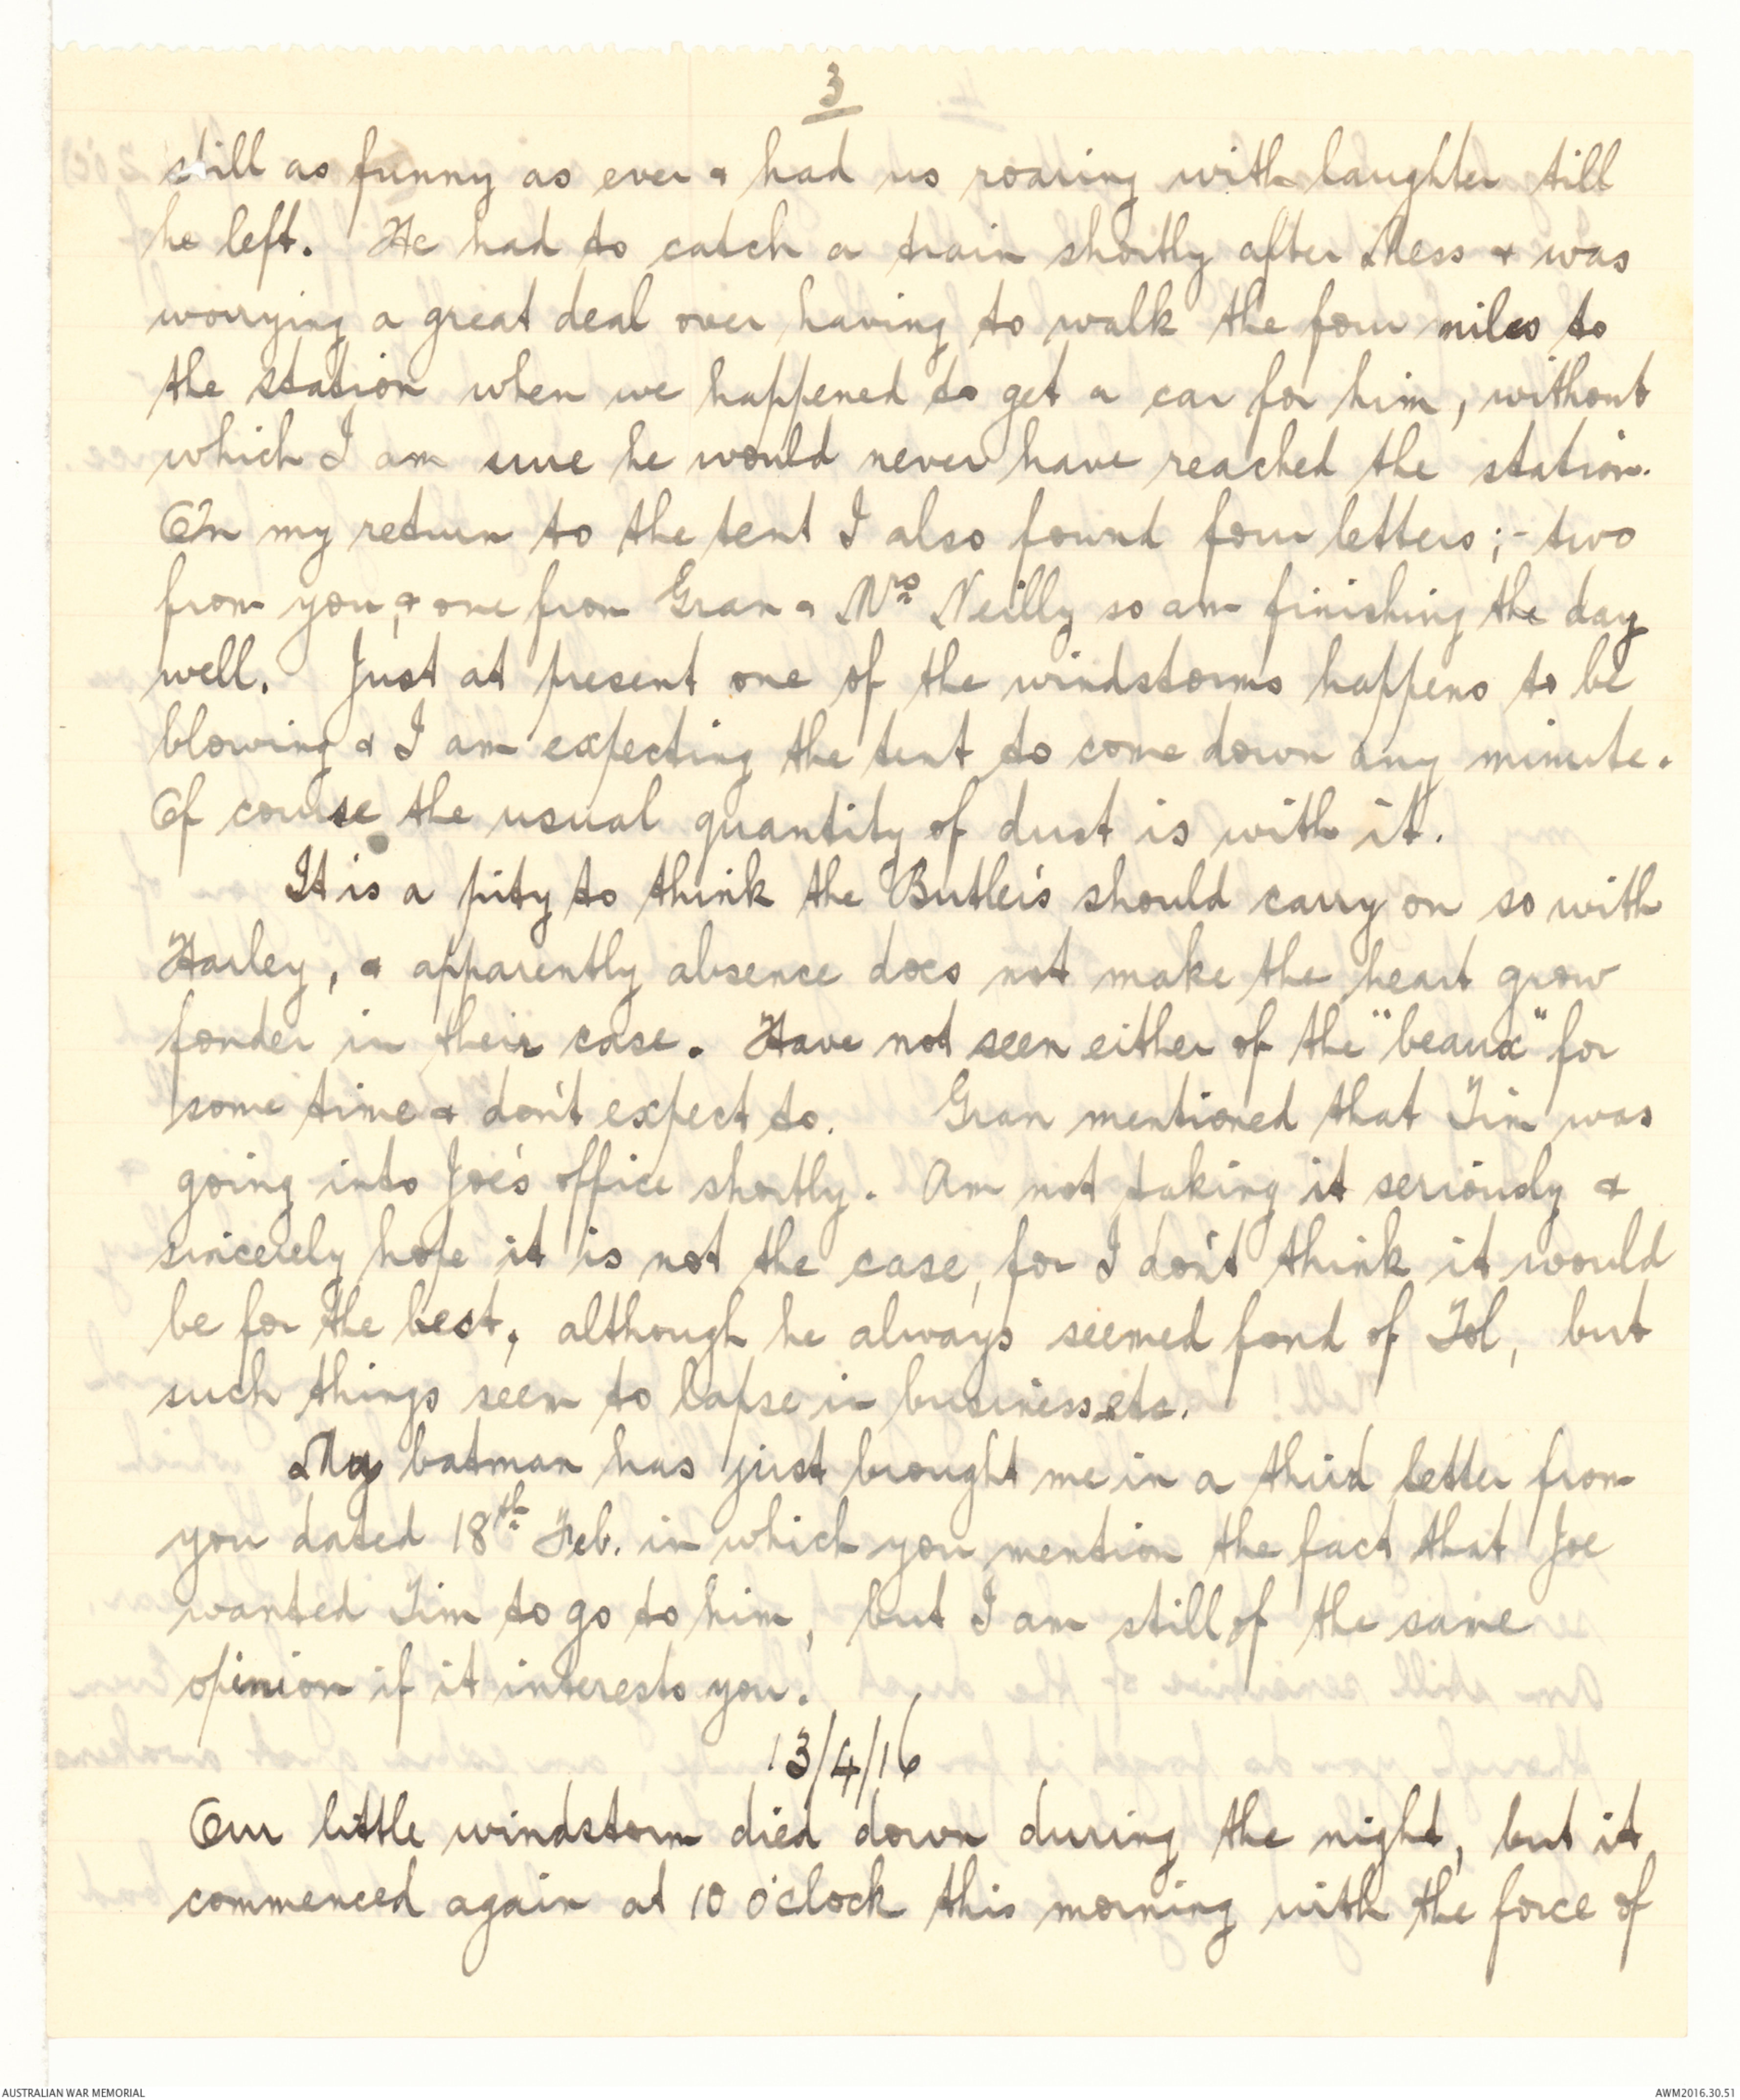 3
still as funny as ever & had us roaring with laughter till
he left. He had to catch a train shortly after Mess & was
worrying a great deal over having to walk the four miles to
the station when we happened to get a car for him, without
which I am sure he would never have reached the station.
On my return to the tent I also found four letters;- two
from you, & one from Gran & Mrs Neilly so am finishing the day
well. Just at present one of the windstorms happens to be
blowing & I am expecting the tent to come down any minute.
Of course the usual quantity of dust is with it.
It is a pity to think the Butler's should carry on so with
Harley, & apparently absence does not make the heart grow
fonder in their case. Have not seen either of the "beaux" for
some time & don't expect to. Gran mentioned that Tim was
going into Joe's office shortly. Am not taking it seriously &
sincerely hope it is not the case, for I don't think it would
be for the best, although he always seemed fond of Tol, but
such things seem to lapse in business etc.
My batman has just brought me in a third letter from
you dated 18th Feb. in which you mention the fact that Joe
wanted Tim to go to him, but I am still of the same
opinion if it interests you.
13/4/16
Our little windstorm died down during the night, but it
commenced again at 10 o'clock this morning with the force of
AUSTRALIAN WAR MEMORIAL
AWM2016.30.51